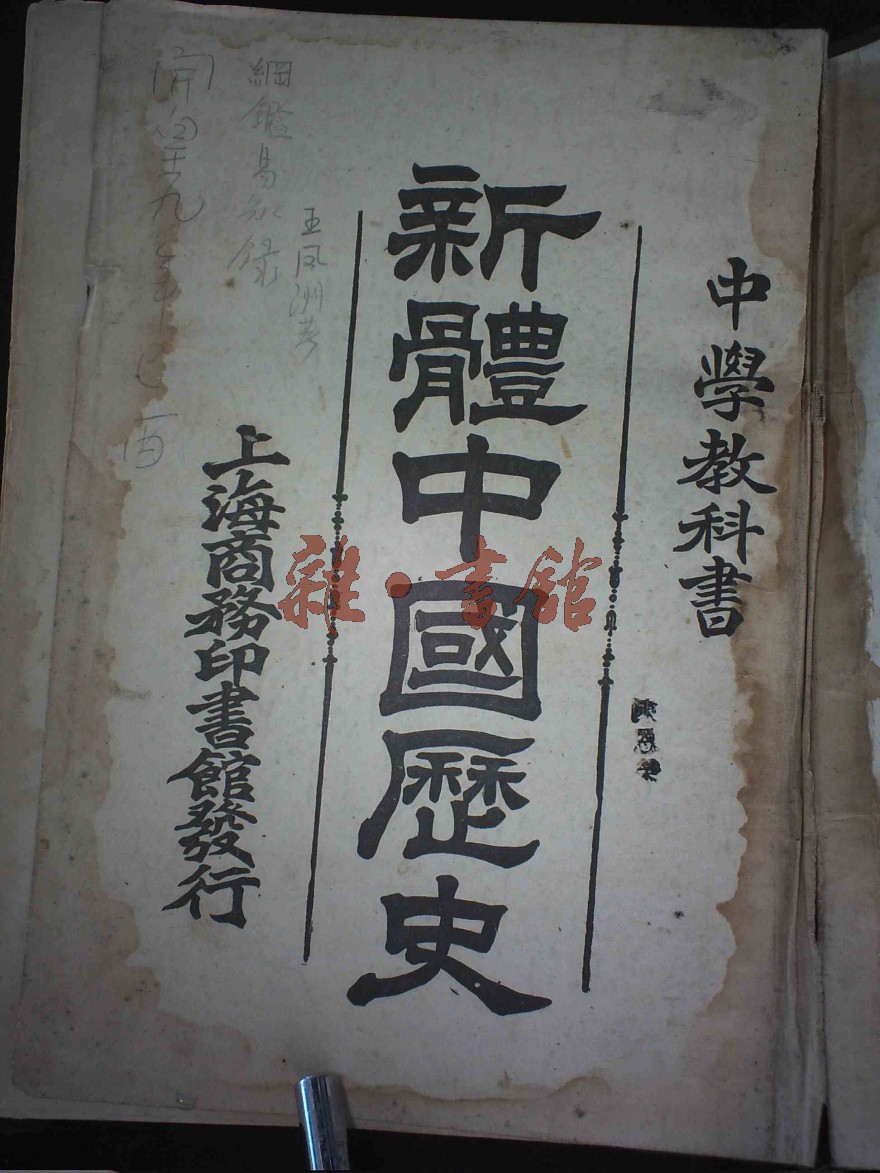 中學教科書
新體中國歷史
上海商務印書館發行
王凤洲考
綱鑑易知錄
雜·書館